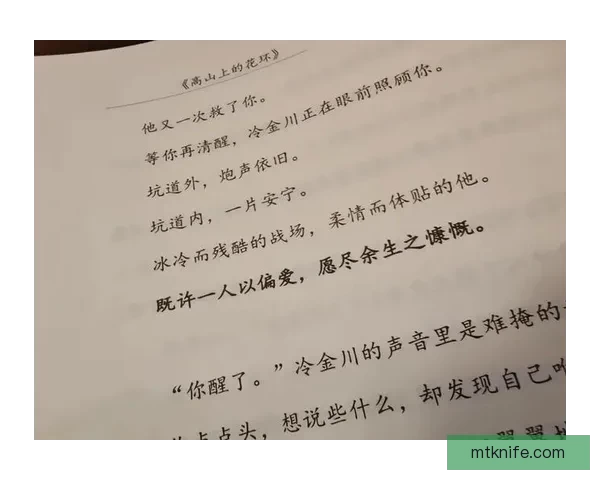 《高山上的花环》
他又一次救了你。
等你再清醒，冷金川正在眼前照顾你。
坑道外，炮声依旧。
坑道内，一片安宁。
冰冷而残酷的战场，柔情而体贴的他。
既许一人以偏爱，愿尽余生之慷慨。
“你醒了。”冷金川的声音里是难掩的
点点头，想说些什么，却发现自己
翼翼
mtknife.com